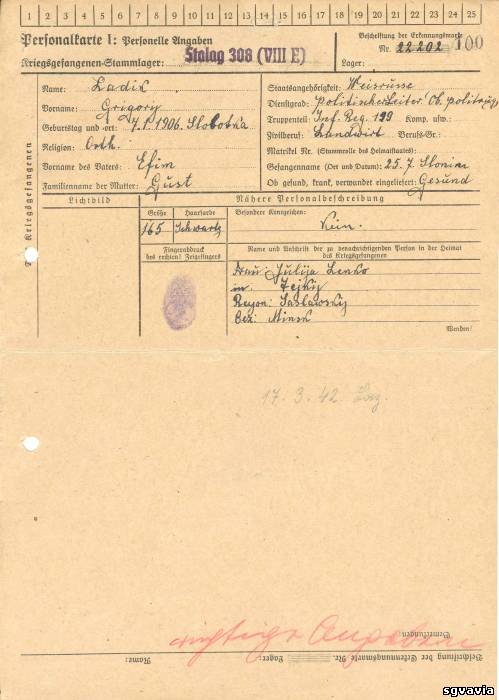 1 2 3 4 5 6 7 8 9 10 11 12 13 14 15 16 17 18 19 20 21 22 23 24 25
Personalkarte I: Personelle Angaben
Kriegsgefangenen-Stammlager: Stalag 308 (VIII E)
Beschriftung der Erkennungsmarke
Nr. 22202 100
Lager:
Name: Ladik
Vorname: Grigory
Geburtstag und -ort: 7.1.1906. Slobotka
Religion: Orth.
Vorname des Vaters: Efim
Familienname der Mutter: Gust
Staatsangehörigkeit: Weisrusse
Dienstgrad: politischer Leiter/Ob. politruk
Truppenteil: Inf. Reg. 199 Komp. usw.:
Zivilberuf: Landwirt Berufs-Gr.:
Matrikel Nr. (Stammrolle des Heimatstaates):
Gefangennahme (Ort und Datum): 25.7. Slonim
Ob gesund, krank, verwundet eingeliefert: Gesund
Lichtbild
Nähere Personalbeschreibung
Größe
165
Haarfarbe
Schwartz
Besondere Kennzeichen:
Kein.
Fingerabdruck
des rechten! Zeigefingers
Name und Anschrift der zu benachrichtigenden Person in der Heimat
des Kriegsgefangenen
Frau: Julija Lenko
in.
Reyon: Saslawsky
Bez: Minsk
Wenden!
17. 3. 42.
Bemerkungen
Beschriftung der Erkennungsmarke Nr. Lager: Name:
sgvavia